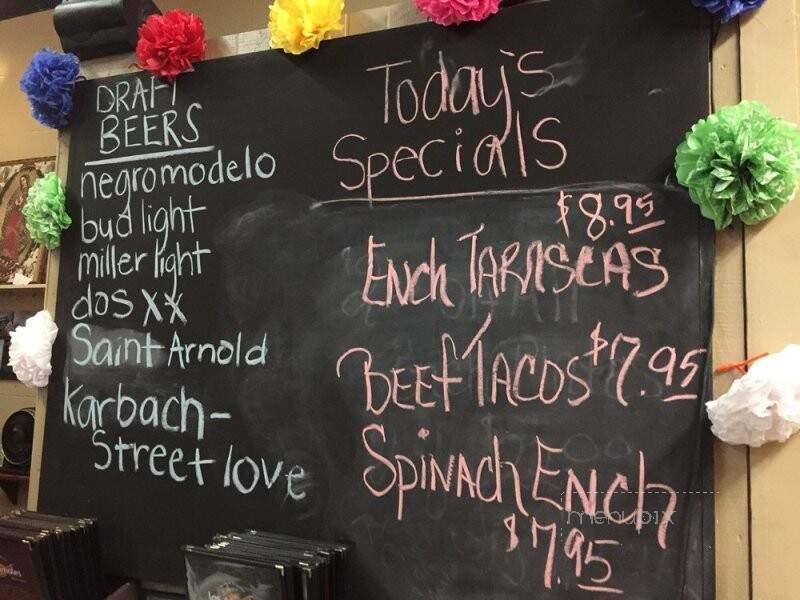 DRAFT
BEERS
negro modelo
bud light
miller light
dos XX
Saint Arnold
Karbach-
Street love
Today's
Specials
$8.95
Ench TARASCAS
BEEf TACOS $7.95
SPINACh ENCh
$7.95
menupix